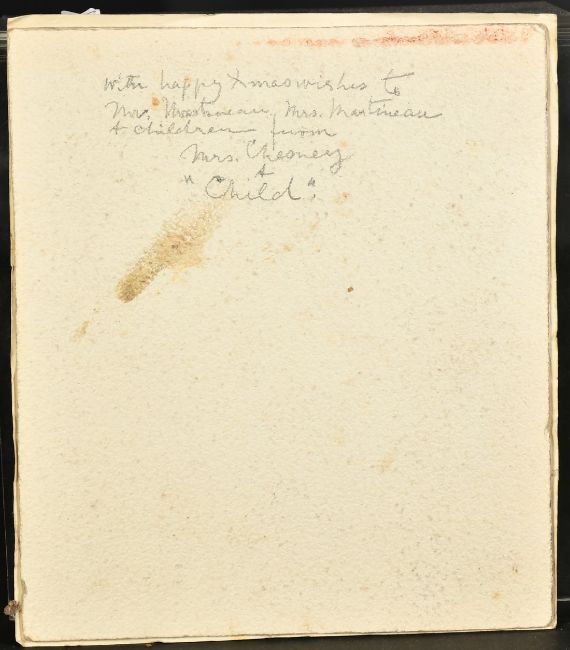 with happy Xmas wishes to
Mr. Martineau, Mrs. Martineau
& children from
Mrs. Chesney
&
"Child".